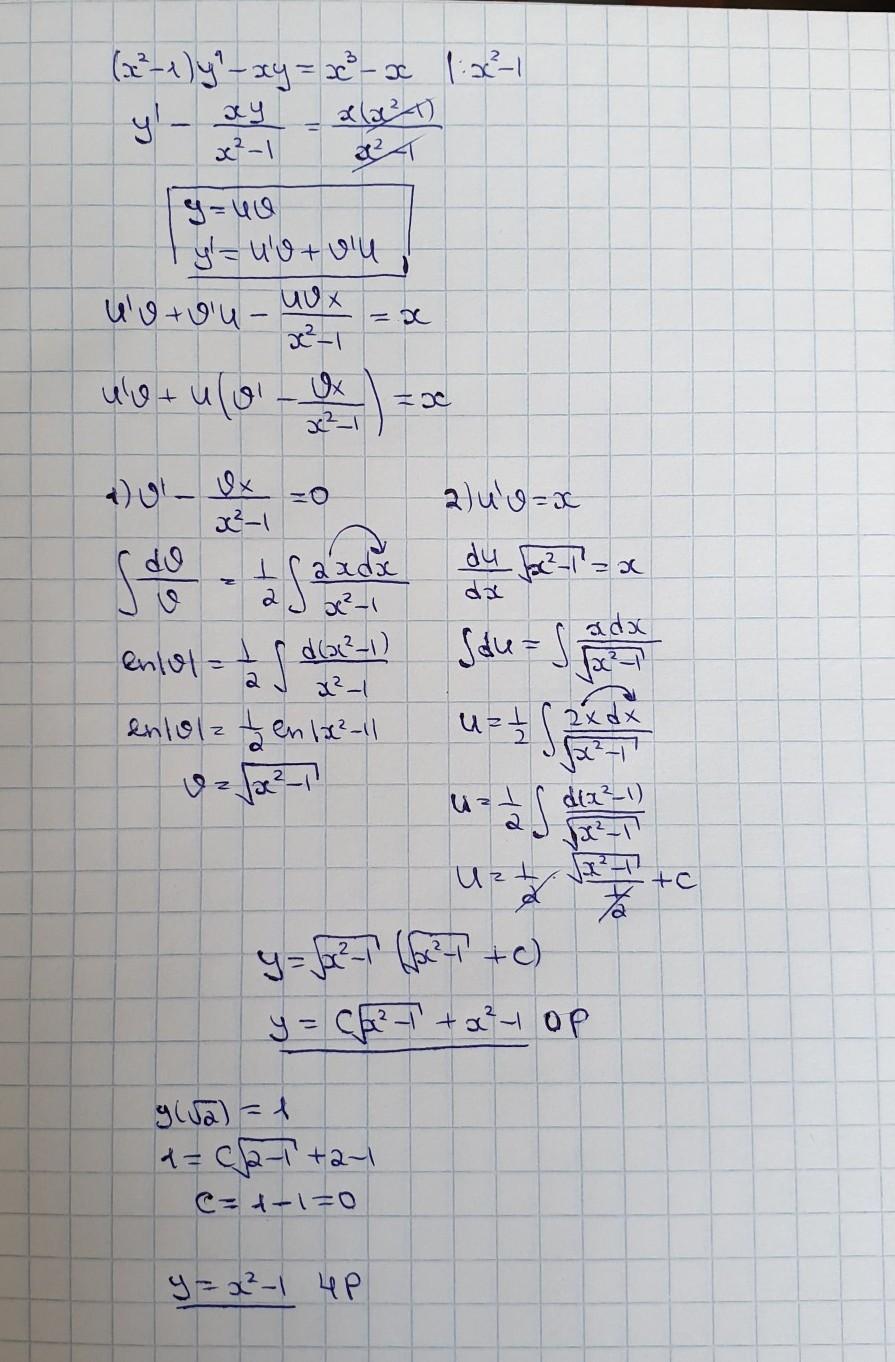 (x²-1)y' - xy = x³ - x |: x²-1
y' - xy/(x²-1) = x(x²-1)/(x²-1)
y = uv
y' = u'v + v'u
u'v + v'u - uvx/(x²-1) = x
u'v + u(v' - vx/(x²-1)) = x
1) v' - vx/(x²-1) = 0
∫ dv/v = 1/2 ∫ 2xdx/(x²-1)
ln|v| = 1/2 ∫ d(x²-1)/(x²-1)
ln|v| = 1/2 ln|x²-1|
v = √(x²-1)
2) u'v = x
du/dx √(x²-1) = x
∫du = ∫ xdx/√(x²-1)
u = 1/2 ∫ 2xdx/√(x²-1)
u = 1/2 ∫ d(x²-1)/√(x²-1)
u = 1/2 · √(x²-1)/(1/2) + C
y = √(x²-1) (√(x²-1) + C)
y = C√(x²-1) + x² - 1 ОР
y(√2) = 1
1 = C√(2-1) + 2 - 1
C = 1 - 1 = 0
y = x² - 1 ЧР